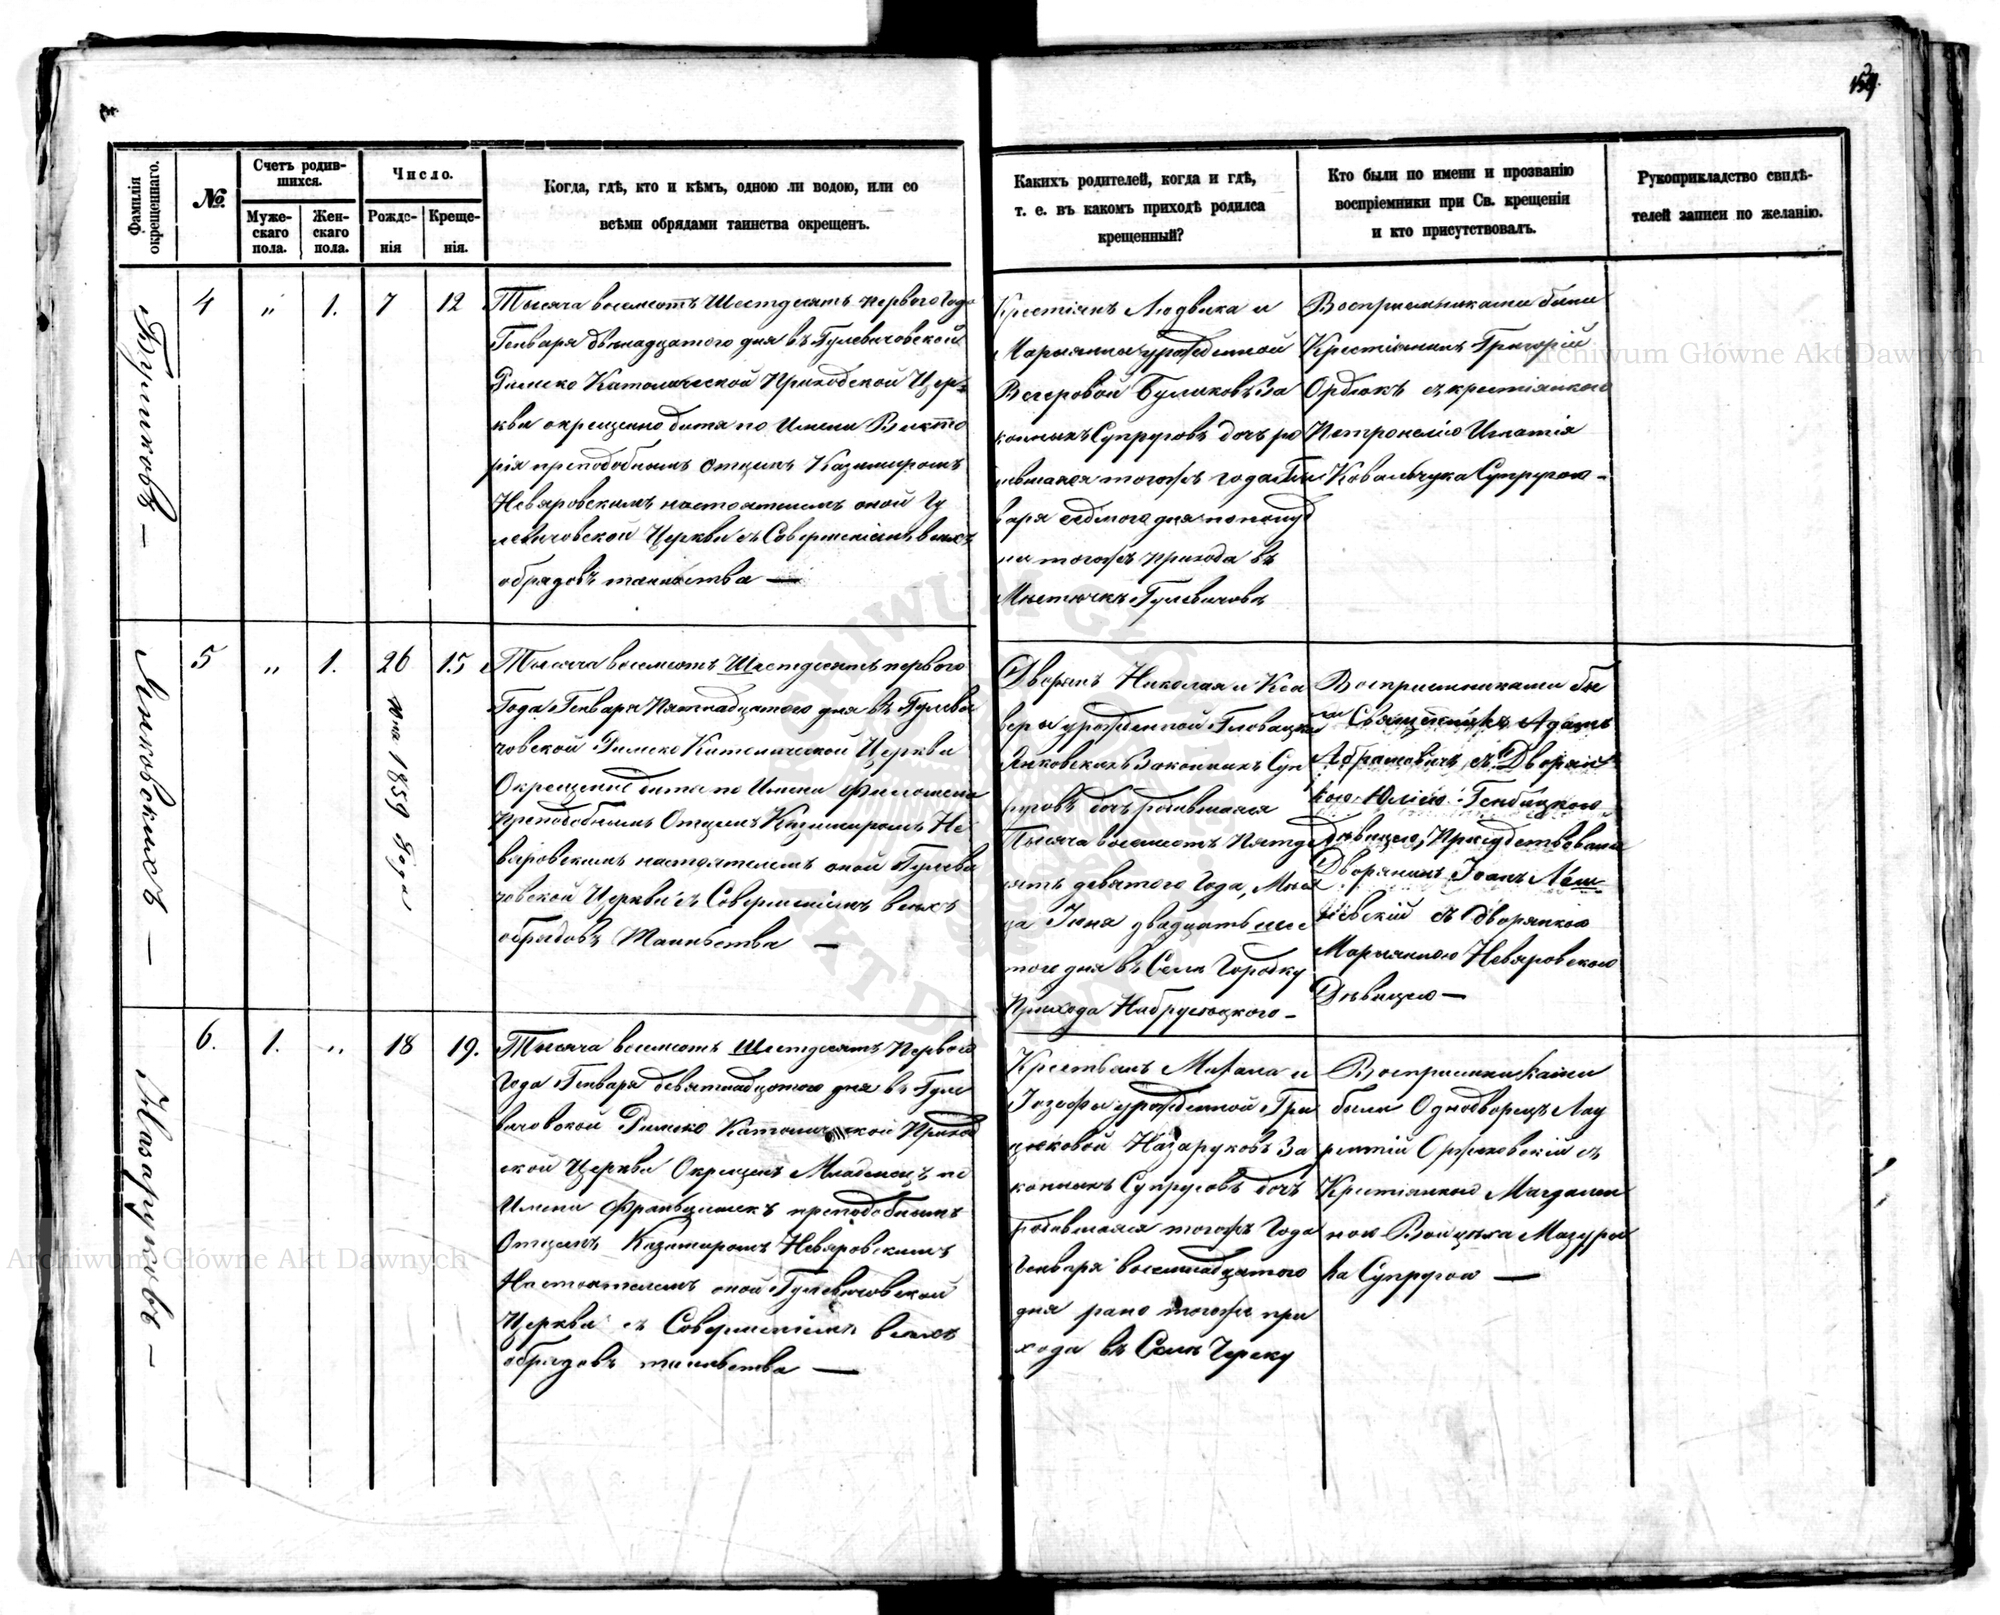 3.
159.
Фамилія окрещеннаго.
№.
Счетъ родив-
шихся.
Муже-
скаго
пола.
Жен-
скаго
пола.
Число.
Рожде-
нія
Креще-
нія.
Когда, гдѣ, кто и кѣмъ, одною ли водою, или со
всѣми обрядами таинства окрещенъ.
Какихъ родителей, когда и гдѣ,
т. е. въ какомъ приходѣ родился
крещенный?
Кто были по имени и прозванію
воспріемники при Св. крещеніи
и кто присутствовалъ.
Рукоприкладство свидѣ-
телей записи по желанію.
4 „ 1. 7 12
Тысяча восемсотъ Шестдесятъ перваго Года
Генваря двѣнадцатого дня въ Гулевичовской
Римско Католической Приходской Цер-
кви окрещенно дитя по Имени Викто
рія преподобнымъ Отцемъ Казимиромъ
Невяровскимъ настоятелемъ оной Гу
левичовской Церкви съ Совершеніемъ всѣхъ
обрядовъ таинства —
Крестіянъ Людвика и
Марыянны урожденной
законныхъ Супруговъ дочь ро
дившаяся тогожъ года Ген
варя седмого дня пополуд
ни тогожъ прихода въ
Мѣстечкѣ Гулевичовѣ
Воспріемниками были
Крестіянинъ Григорій
съ крестіянкою
Петронелію Игнатія
Ковальчука Супругою -
Янковскихъ —
5 „ 1. 26 15
Юня 1859 Года
Тысяча восемсотъ Шестдесятъ перваго
Года Генваря Пятнадцатого дня въ Гулеви
човской Римско Католической Церкви
Окрещенно дитя по Имени Филомена
Преподобнымъ Отцемъ Казимиромъ Не
вяровскимъ настоятелемъ оной Гулеви
човской Церкви съ Совершеніемъ всѣхъ
обрядовъ Таинства —
Дворянъ Николая и Ксa
веры урожденной Гловацкой
Янковскихъ Законныхъ Суп
руговъ дочь родившаяся
Тысяча восемсотъ Пятде
сятъ девятого Года, Мѣся
ца Юня двадцать шес
того дня въ Селѣ Городку
Прихода Набрусоцкого -
Воспріемниками бы
ли Священникъ Адамъ
Абрамовичъ съ Дворян
кою Юліею
Дѣвицею, Присудствовали
Дворянинъ Іоанъ
съ дворянкою
Марыянною Невяровскою
Дѣвицею —
Назаруковъ —
6. 1. „ 18 19.
Тысяча восемсотъ Шестдесятъ Перваго
Года Генваря девятнадцатого дня въ Гуле
вичовской Римско Католической Приход
ской Церкви Окрещенъ Младенецъ по
Имени Францишекъ преподобнымъ
Отцемъ Казимиромъ Невяровскимъ
Настоятелемъ оной Гулевичовской
Церкви съ Совершеніемъ всѣхъ
обрядовъ таинства —
Крестьянъ Михала и
Іозефы урожденной Гри
цюковой Назаруковъ За
конныхъ Супруговъ дочь
родившаяся тогожъ Года
Генваря восемнадцатого
дня рано тогоже при
хода въ Селѣ
Воспріемниками
были Однодворецъ Лау
рентій Оржеховскій съ
Крестіянкою Магдален
ною Войцѣха Мазуру
ка Супругою —
Archiwum Główne Akt Dawnych
Archiwum Główne Akt Dawnych
ARCHIWUM GŁÓWNE AKT DAWNYCH